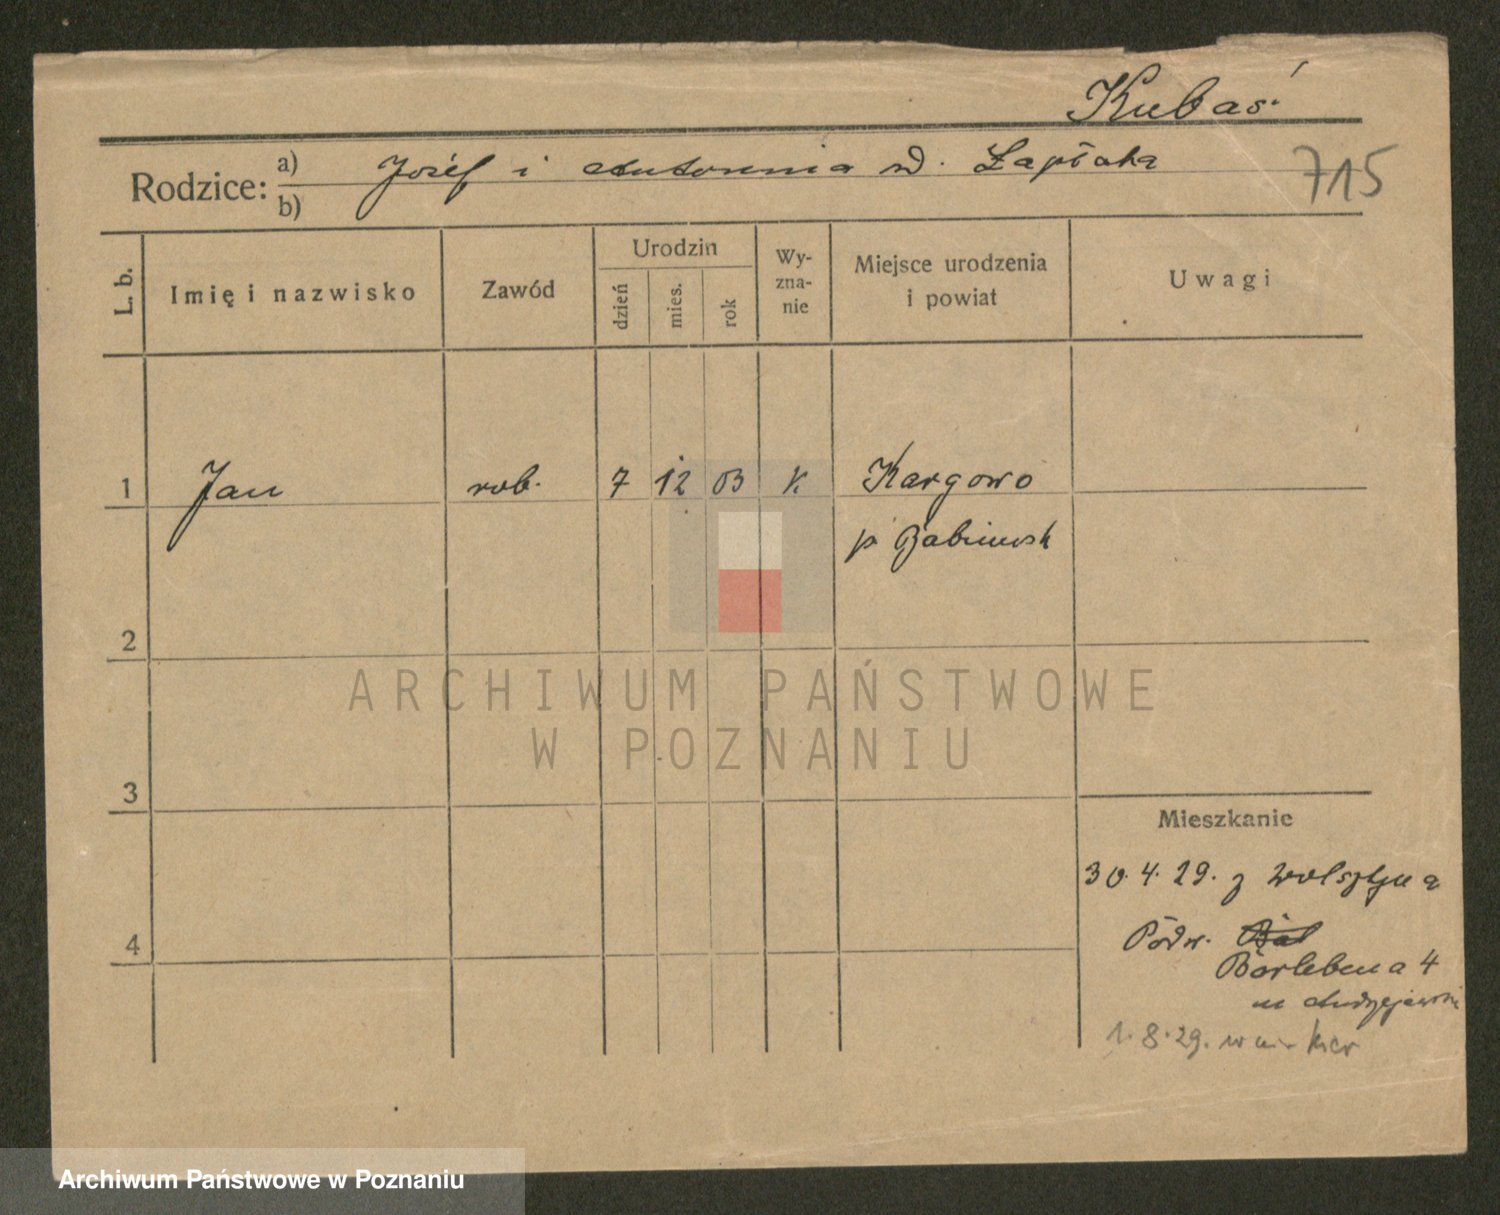 Kubaś
Rodzice: a) Józef i Antonina d. Łapśaka
b)
715
L. b. Imię i nazwisko Zawód Urodzin dzień mies. rok Wy-zna-nie Miejsce urodzenia i powiat Uwagi
1 Jan rob. 7 12 03 K Kargowo
p. Babimost
2
3
4
Mieszkanie
30.4.29. z Wolsztyna
Półw.
Barlebena 4
u Andrzejewski
1.8.29. w kier
ARCHIWUM PAŃSTWOWE
W POZNANIU
Archiwum Państwowe w Poznaniu